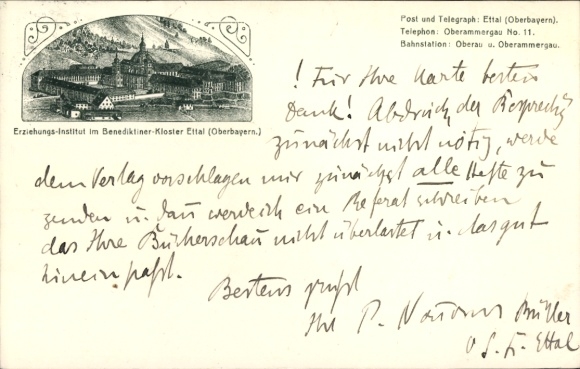 Post und Telegraph: Ettal (Oberbayern).
Telephon: Oberammergau No. 11.
Bahnstation: Oberau u. Oberammergau.
Erziehungs-Institut im Benediktiner-Kloster Ettal (Oberbayern.)
! Für Ihre Karte besten
Dank! Abdruck der Besprechg
zunächst nicht nötig, werde
dem Verlag vorschlagen mir zunächst alle Hefte zu
senden u. dann werde ich ein Referat schreiben
das Ihre Bücherschau nicht überlastet u. das gut
hinein paßt.
Bestens grüßt
Ihr P. Müller
O. S. B. Ettal